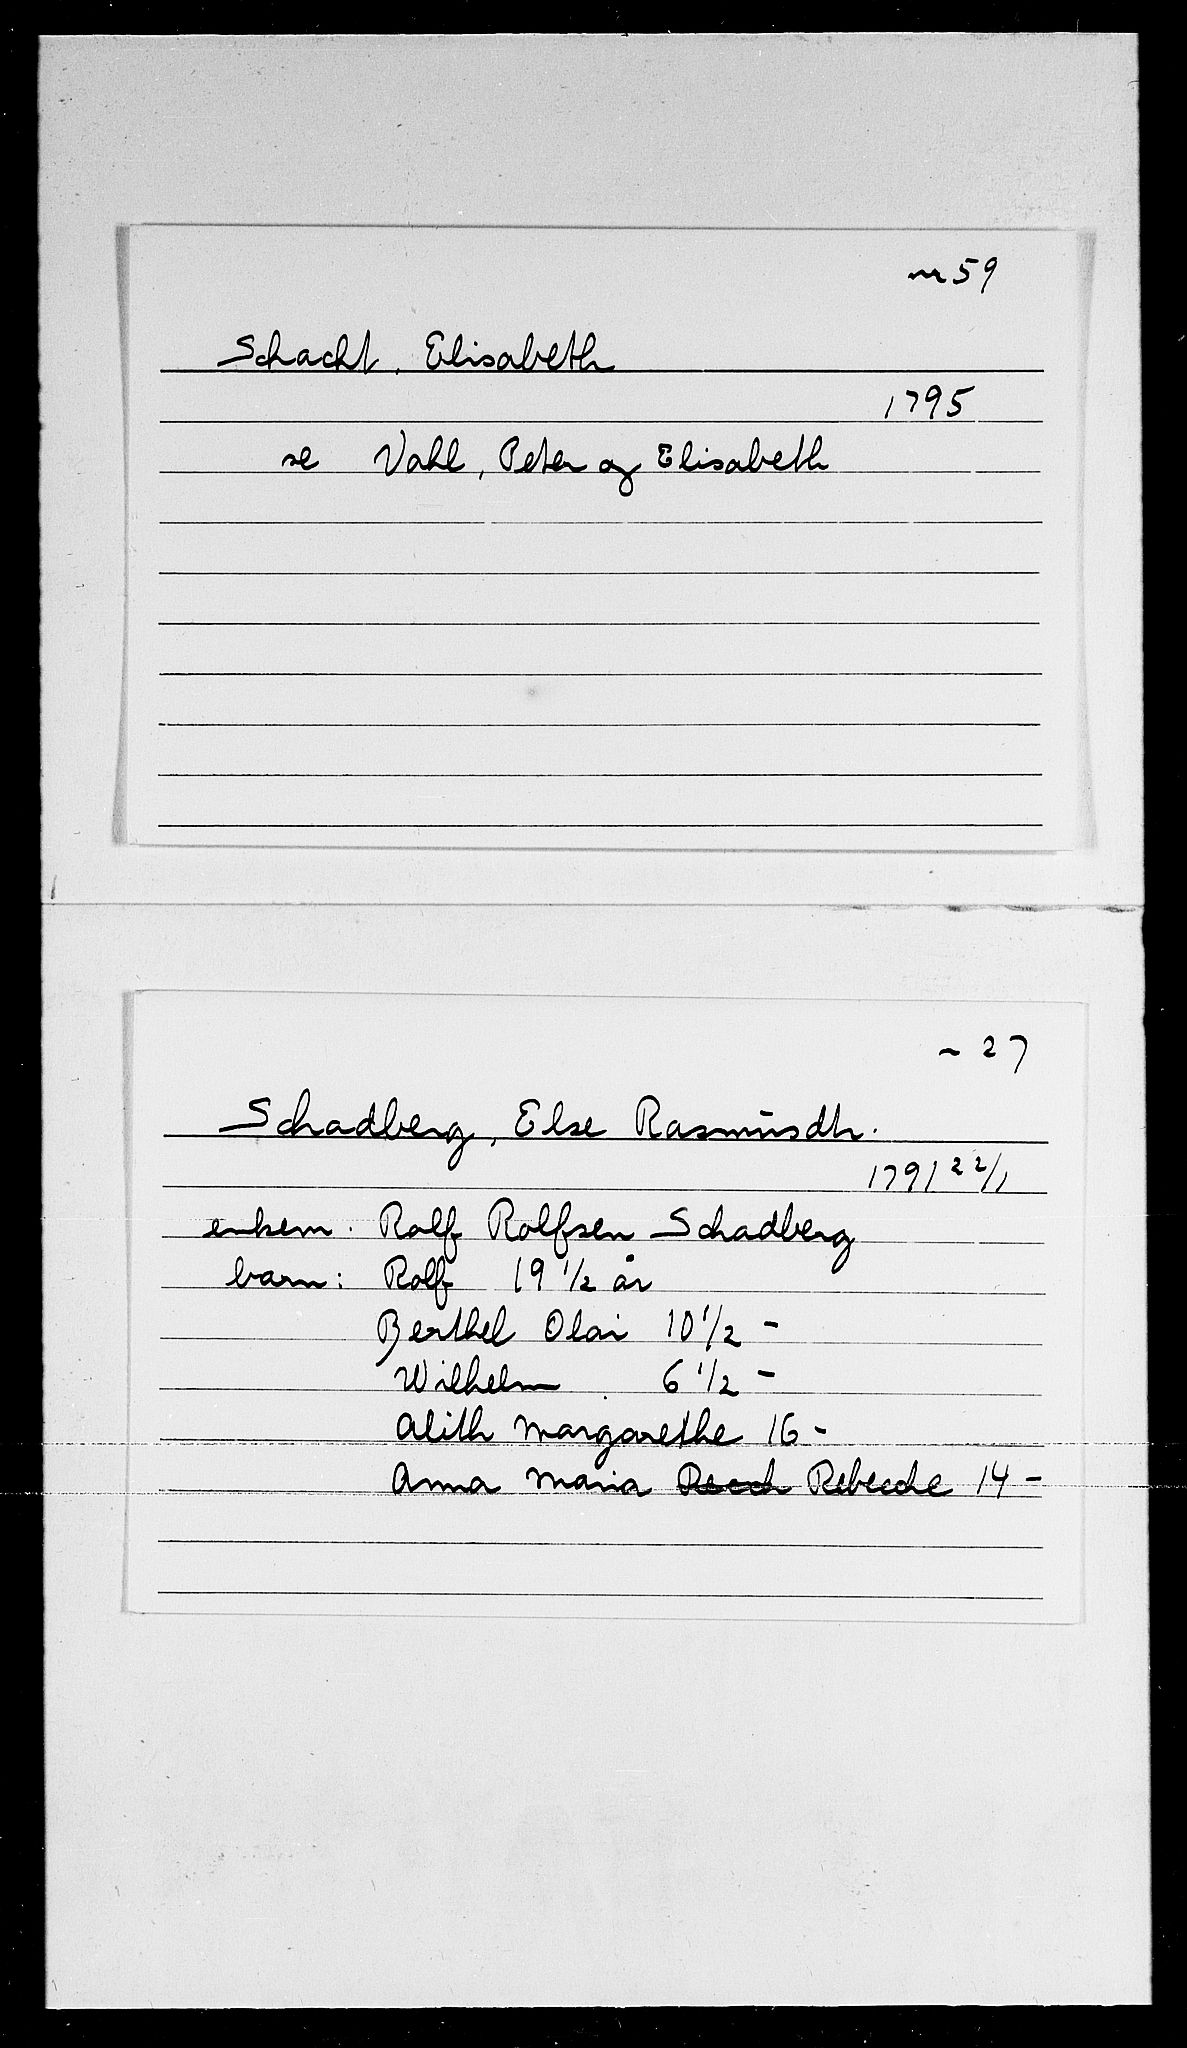 nr 59
Schacht, Elisabeth
1795
se Vahl, Peter og Elisabeth
~ 27
Schadberg, Else Rasmusdtr.
1791 22/1
enkem. Rolf Rolfsen Schadberg
barn: Rolf 19 1/2 år
Berthel Olai 10 1/2 -
Wilhelm 6 1/2 -
Alith Margarethe 16 -
Anna Maria Rebecche 14 -